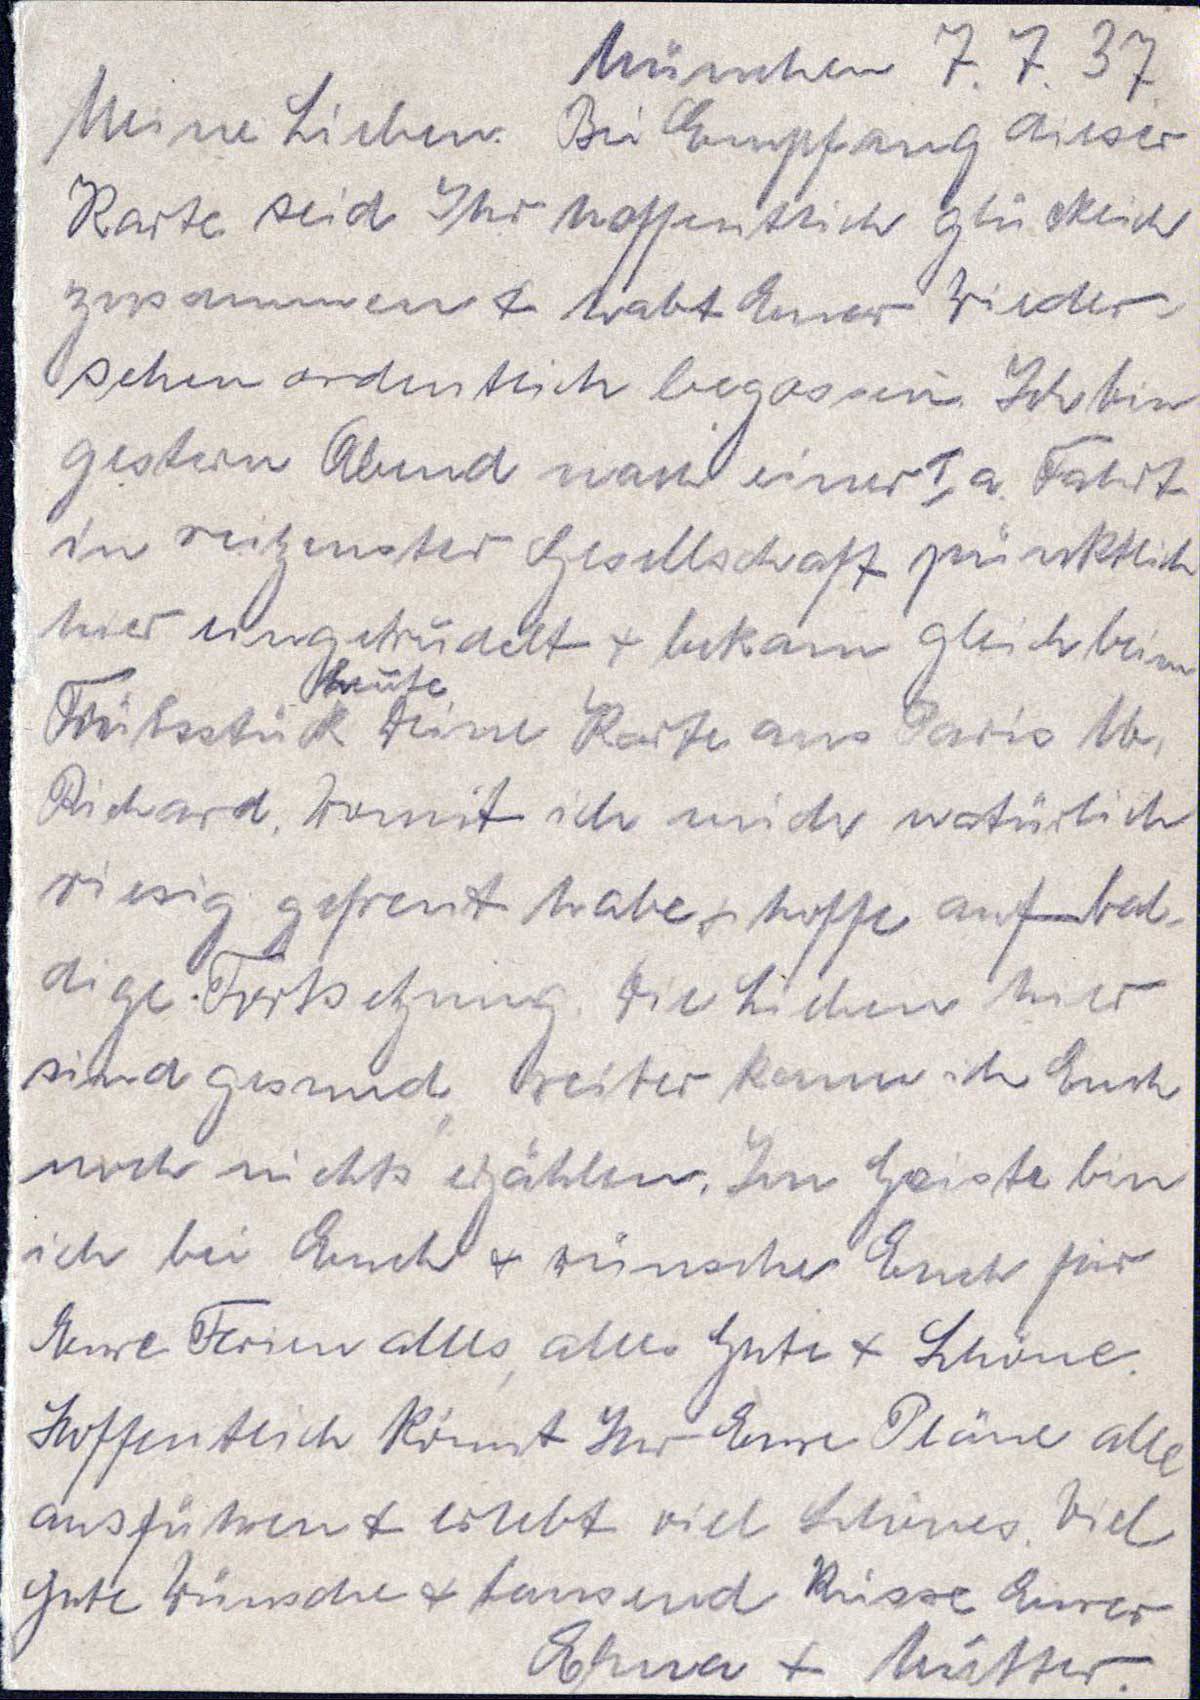 München 7. 7. 37
Meine Lieben. Bei Empfang dieser
Karte seid Ihr hoffentlich glücklich
zusammen & habt Euer Wieder-
sehen ordentlich begossen. Ich bin
gestern Abend nach einer I a. Fahrt
in reizenster Gesellschaft pünktlich
hier eingetrudelt & bekam gleich beim
heute
Frühsstück Deine Karte aus Paris lb.
Richard, womit ich mich natürlich
riesig gefreut habe & hoffe auf bal-
dige Fortsetzung. Die Lieben hier
sind gesund, weiter kann ich Euch
noch nichts erzählen. Im Geiste bin
ich bei Euch & wünsche Euch für
Eure Ferien alles, alles Gute & Schöne.
Hoffentlich könnt Ihr Eure Pläne alle
ausführen & erlebt viel Schönes. Viel
gute Wünsche & tausend Küsse Eurer
Erna & Mutter.